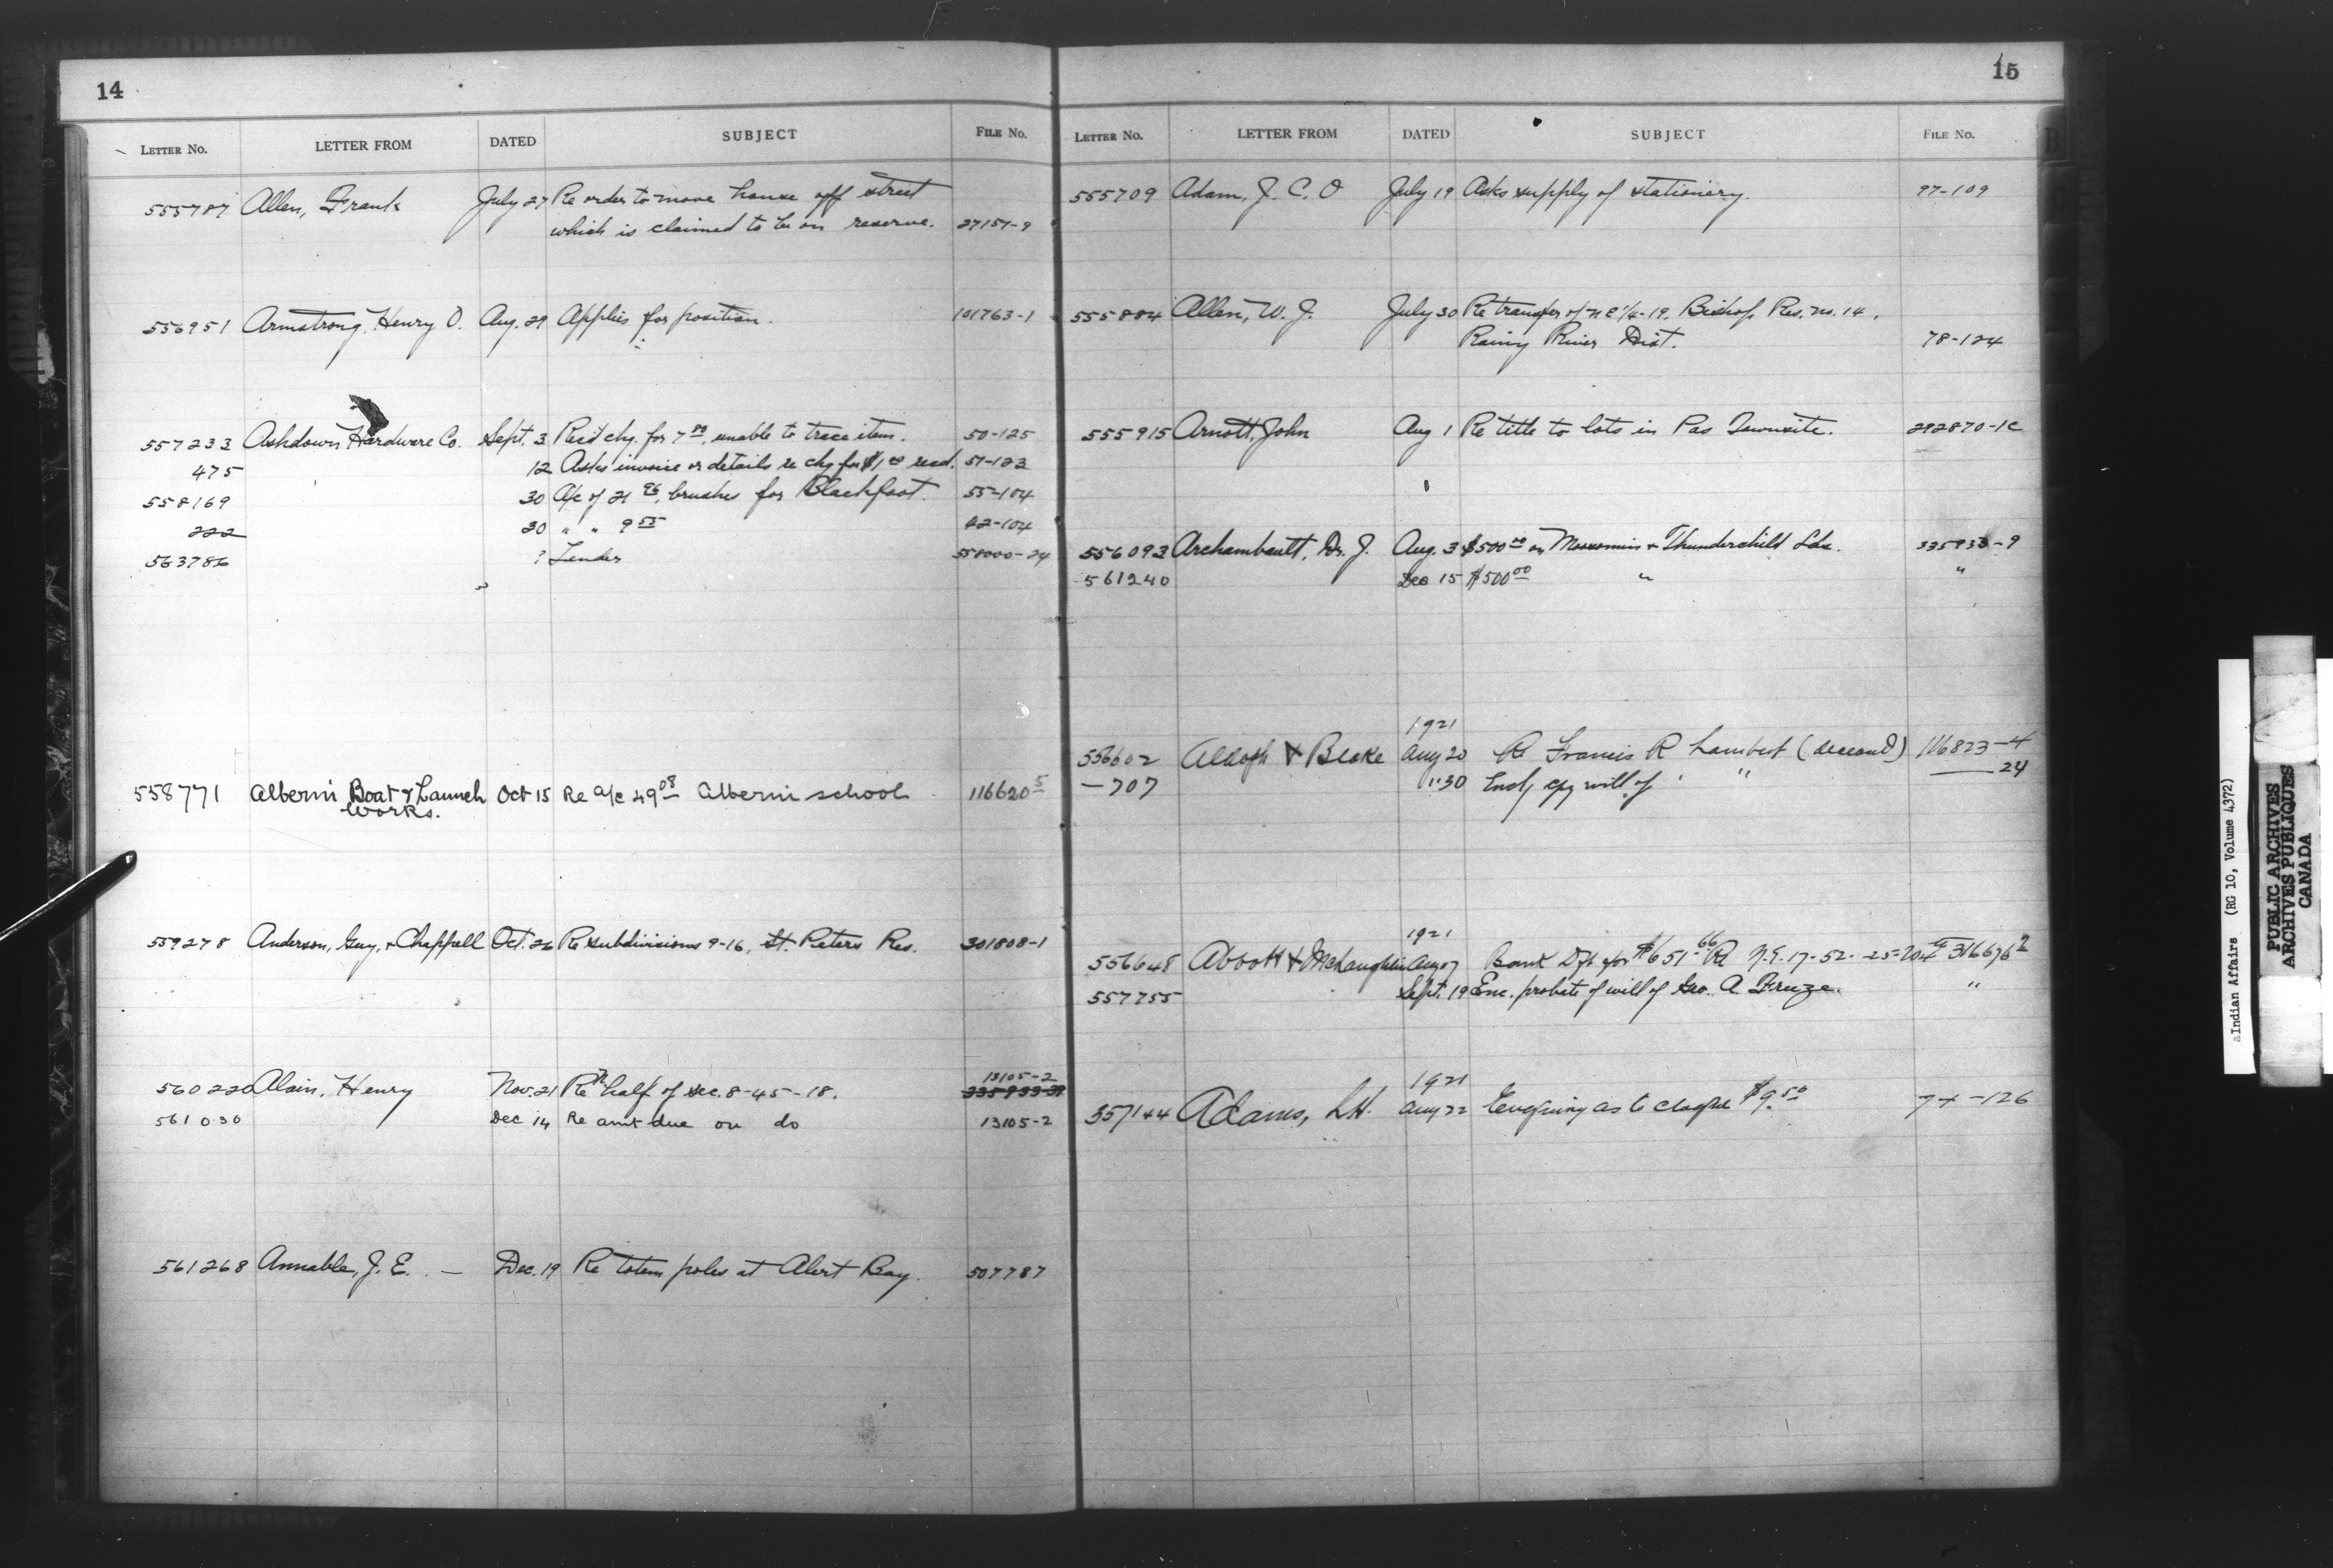 14
LETTER NO. LETTER FROM DATED SUBJECT FILE No.
555787 Allen, Frank July 27 Re order to move house off street
which is claimed to be on reserve. 27157-9
556951 Armstrong, Henry O. Aug. 29 Applies for position. 101763-1
557233 Ashdown Hardware Co. Sept. 3 Rec'd chq. for 7.80, unable to trace item. 50-125
475 12 Asks invoice or details re chq for $1.00 recd. 51-123
558169 30 A/c of 21 96, brushes for Blackfoot. 55-104
222 30 " " 9 55 42-104
563786 ? Tender 558000-24
558771 Alberni Boat & Launch Works. Oct 15 Re a/c 49 08 Alberni school 116620 5
559278 Anderson, Guy, & Chappell Oct. 26 Re subdivisions 9-16, St. Peters Res. 301808-1
560220 Alain, Henry Nov. 21 Re N. half of sec. 8-45-18. 13105-2
561030 Dec 14 Re amt due on do 13105-2
561268 Annable, J. E. — Dec. 19 Re totem poles at Alert Bay. 507787
15
LETTER NO. LETTER FROM DATED SUBJECT FILE No.
555709 Adam, J. C. O July 19 Asks supply of stationery. 97-109
555884 Allen, W. J. July 30 Re transfer of n e 1/4-19, Bishop Res. no. 14,
Rainy River Dist. 78-124
555915 Arnott, John Aug 1 Re title to lots in Pas Townsite. 292870-1C
556093 Archambault, Dr. J. Aug. 3 $500 00 on Moosomin & Thunderchild Lds. 335933-9
561240 Dec 15 $500 00 " "
1921
556602 Aldoph & Blake Aug 20 Re Francis R Lambert (deceased) 116823-4
—707 " 30 Encl, cpy will of " " —24
1921
556648 Abbott & McLaughlin Aug 7 Bank Dft for $651 66 Re N.E. 17-52-25-W 4th 316676 2
557755 Sept. 19 Enc. probate of will of Geo. A. "
1921
557144 Adams, L.H. Aug 22 Enquiring as to cheque $9.50 74-126
aIndian Affairs (RG 10, Volume 4372)
PUBLIC ARCHIVES
ARCHIVES PUBLIQUES
CANADA